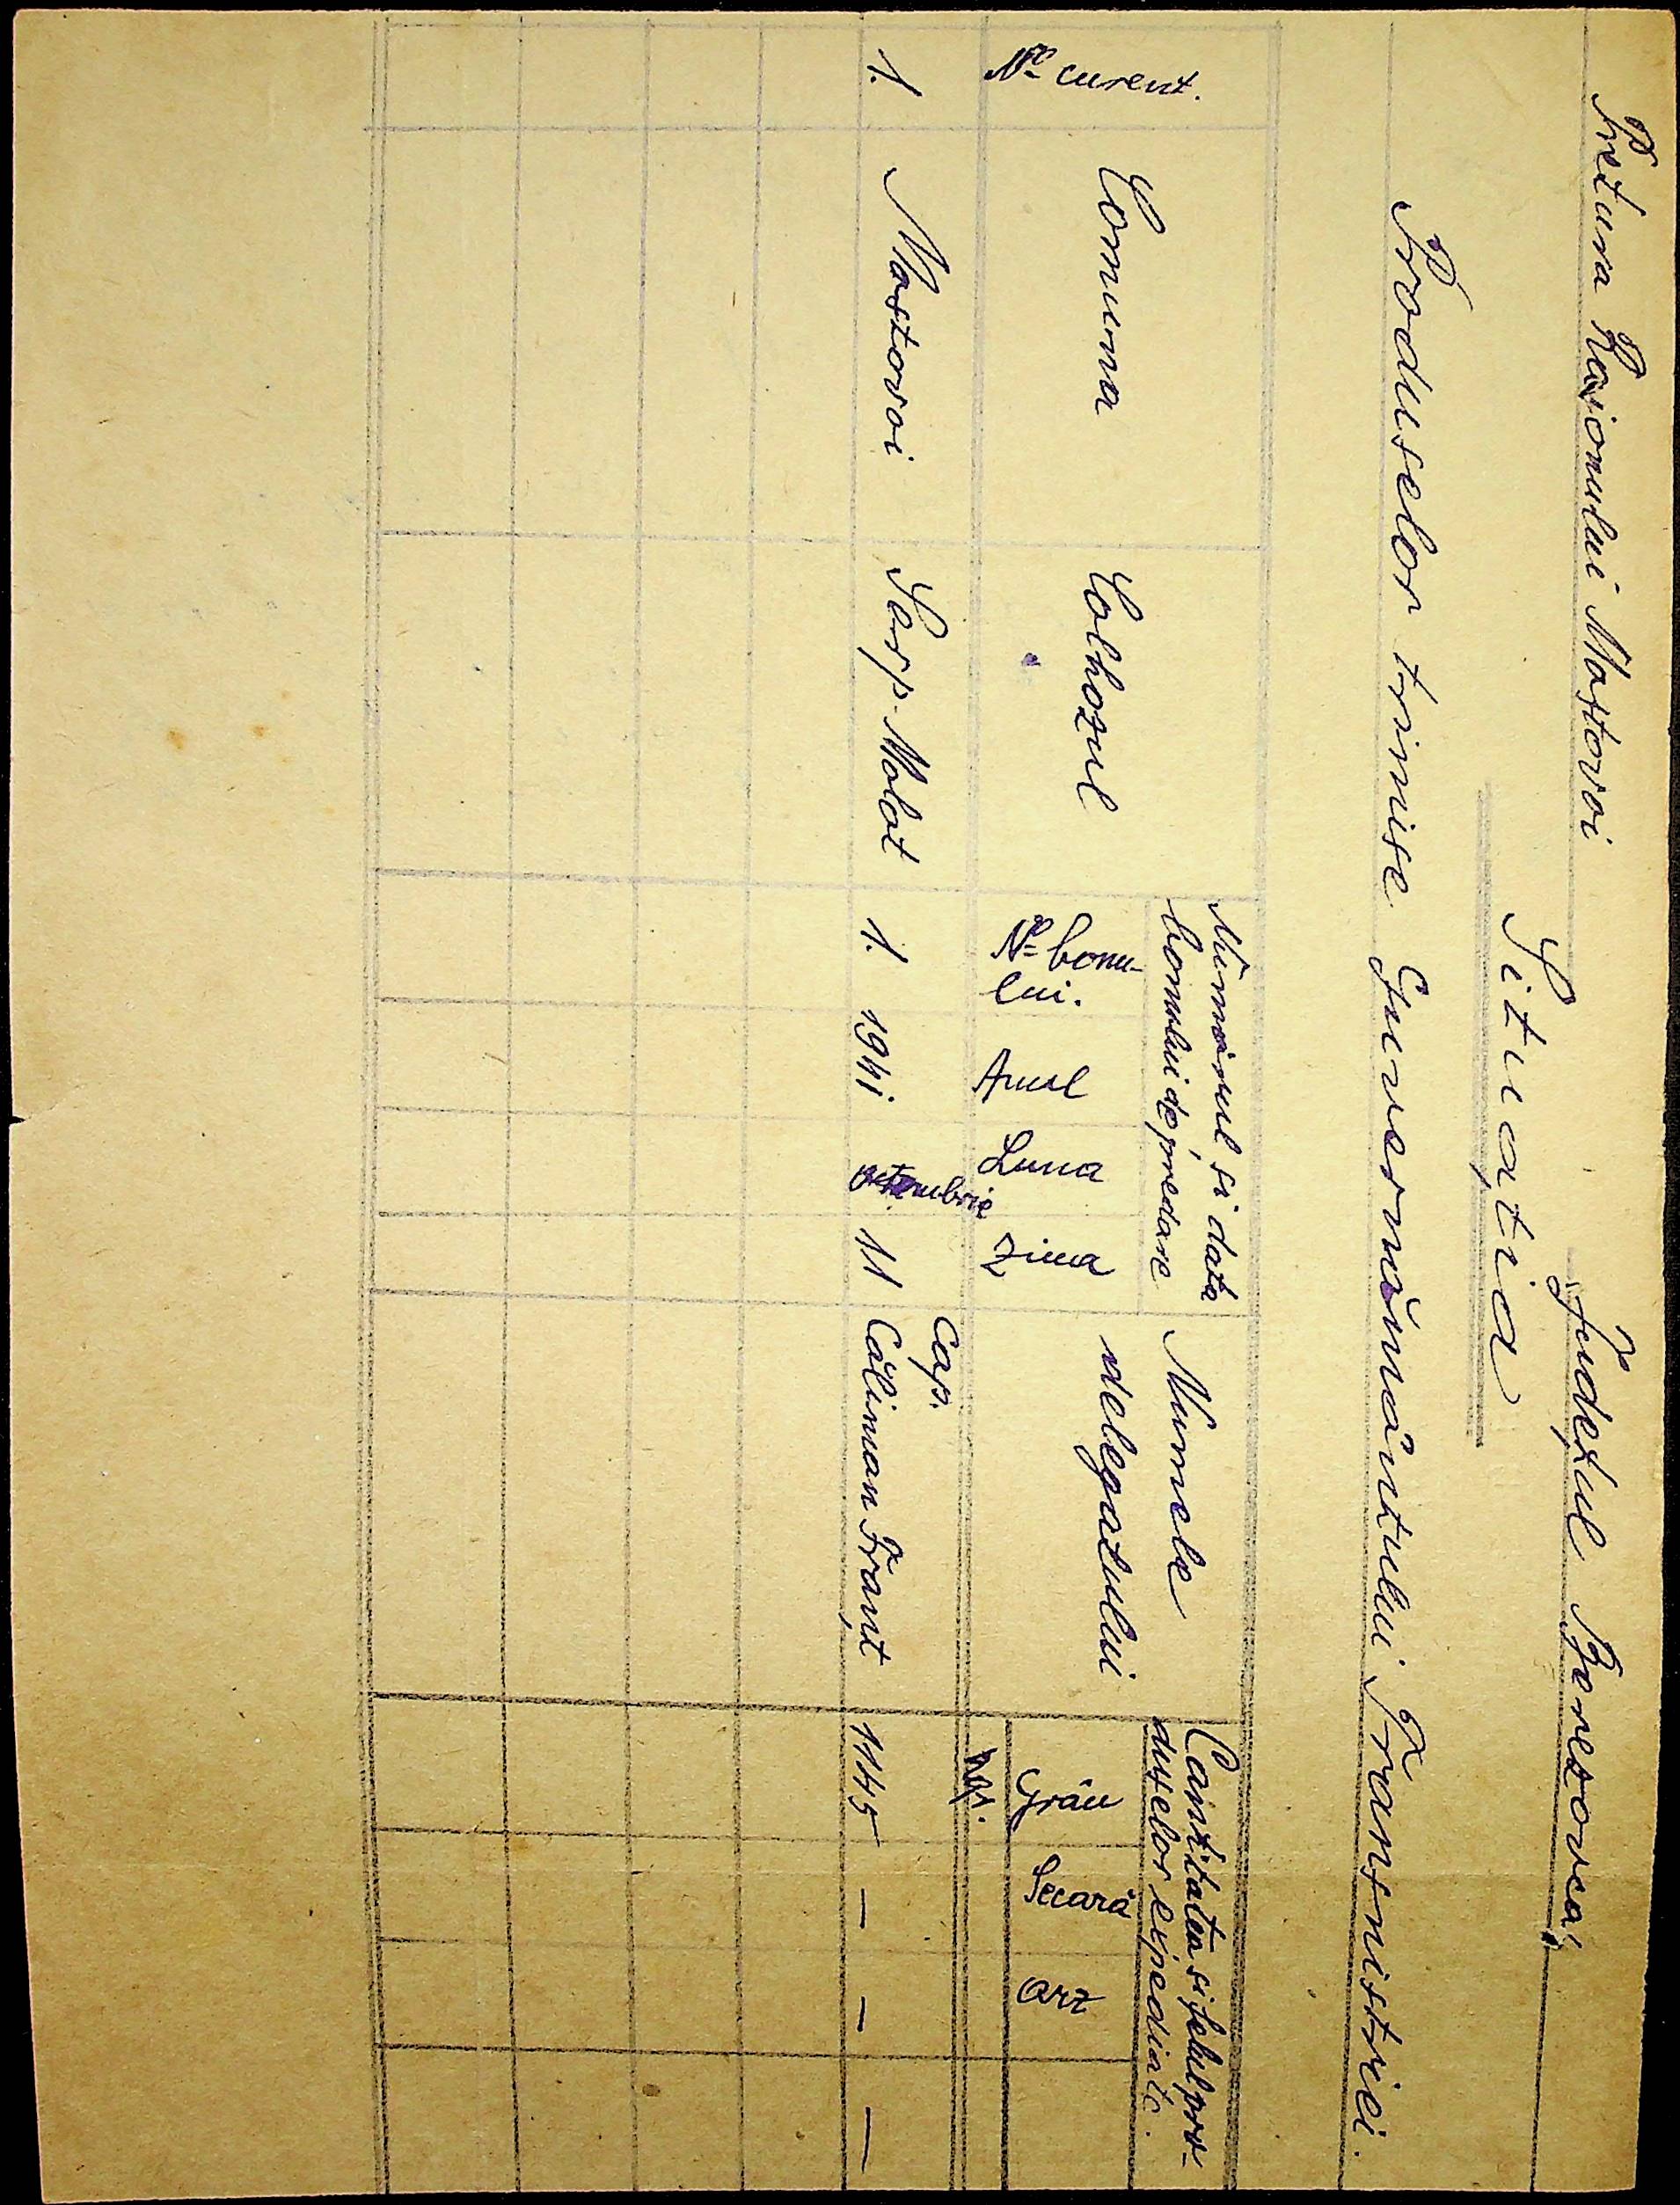 Pretura Raionului Mostovoi
Județul Berezovca
Situația
Produselor trimise Guvernământului Transnistriei.
№ curent.
Comuna
Colhozul
Numărul și data
bonului de predare
№ bonu-
lui.
Anul
Luna
Ziua
Numele
delegatului
Cantitatea și felul pro-
duselor expediate.
Grâu
Secară
Orz
1.
Mostovoi
Serp-Molot
1.
1941
octombrie
11
Cap.
Căliman Franț
1145
—
—
—